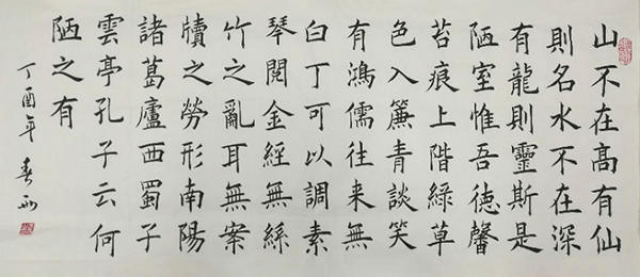 山不在高有仙
則名水不在深
有龍則靈斯是
陋室惟吾德馨
苔痕上階綠草
色入簾青談笑
有鴻儒往来無
白丁可以調素
琴閱金經無絲
竹之亂耳無案
牘之勞形南陽
諸葛廬西蜀子
雲亭孔子云何
陋之有
丁酉年春